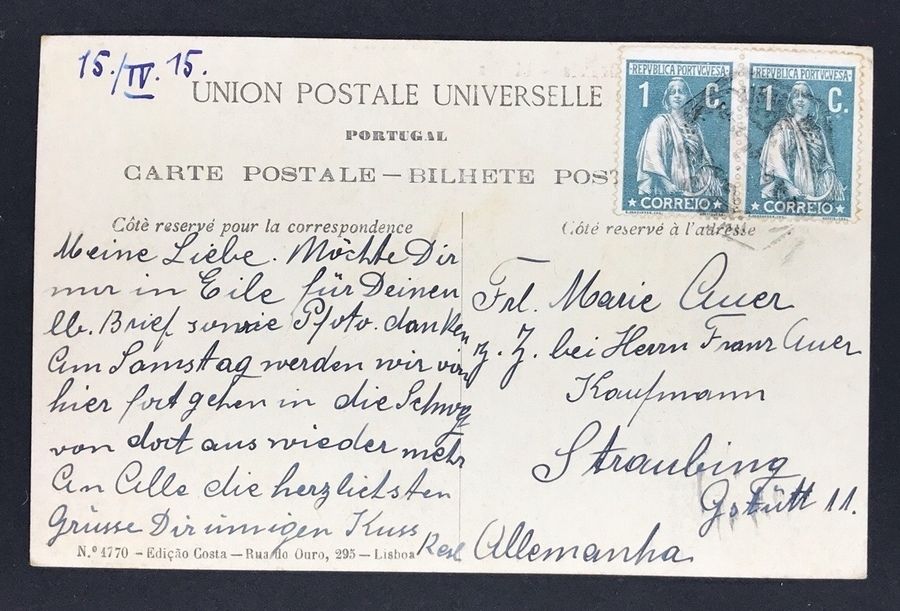 15./IV. 15.
UNION POSTALE UNIVERSELLE
PORTUGAL
CARTE POSTALE — BILHETE POST
REPUBLICA PORTUGUESA
1 C.
CORREIO
REPUBLICA PORTUGUESA
1 C.
CORREIO
Côtè reservé pour la correspondence
Meine Liebe. Möchte Dir
nur in Eile für Deinen
lb. Brief sowie Pfoto. danken
Am Samstag werden wir von
hier fort gehen in die Schweiz
von dort aus wieder mehr
An Alle die herzlichsten
Grüsse Dir innigen Kuss
Côté reservé à l'adresse
Frl. Marie Auer
z. Z. bei Herrn Franz Auer
Kaufmann
Straubing
Gstütt 11.
Allemanha
N.º 4770 – Edição Costa — Rua do Ouro, 295 – Lisboa